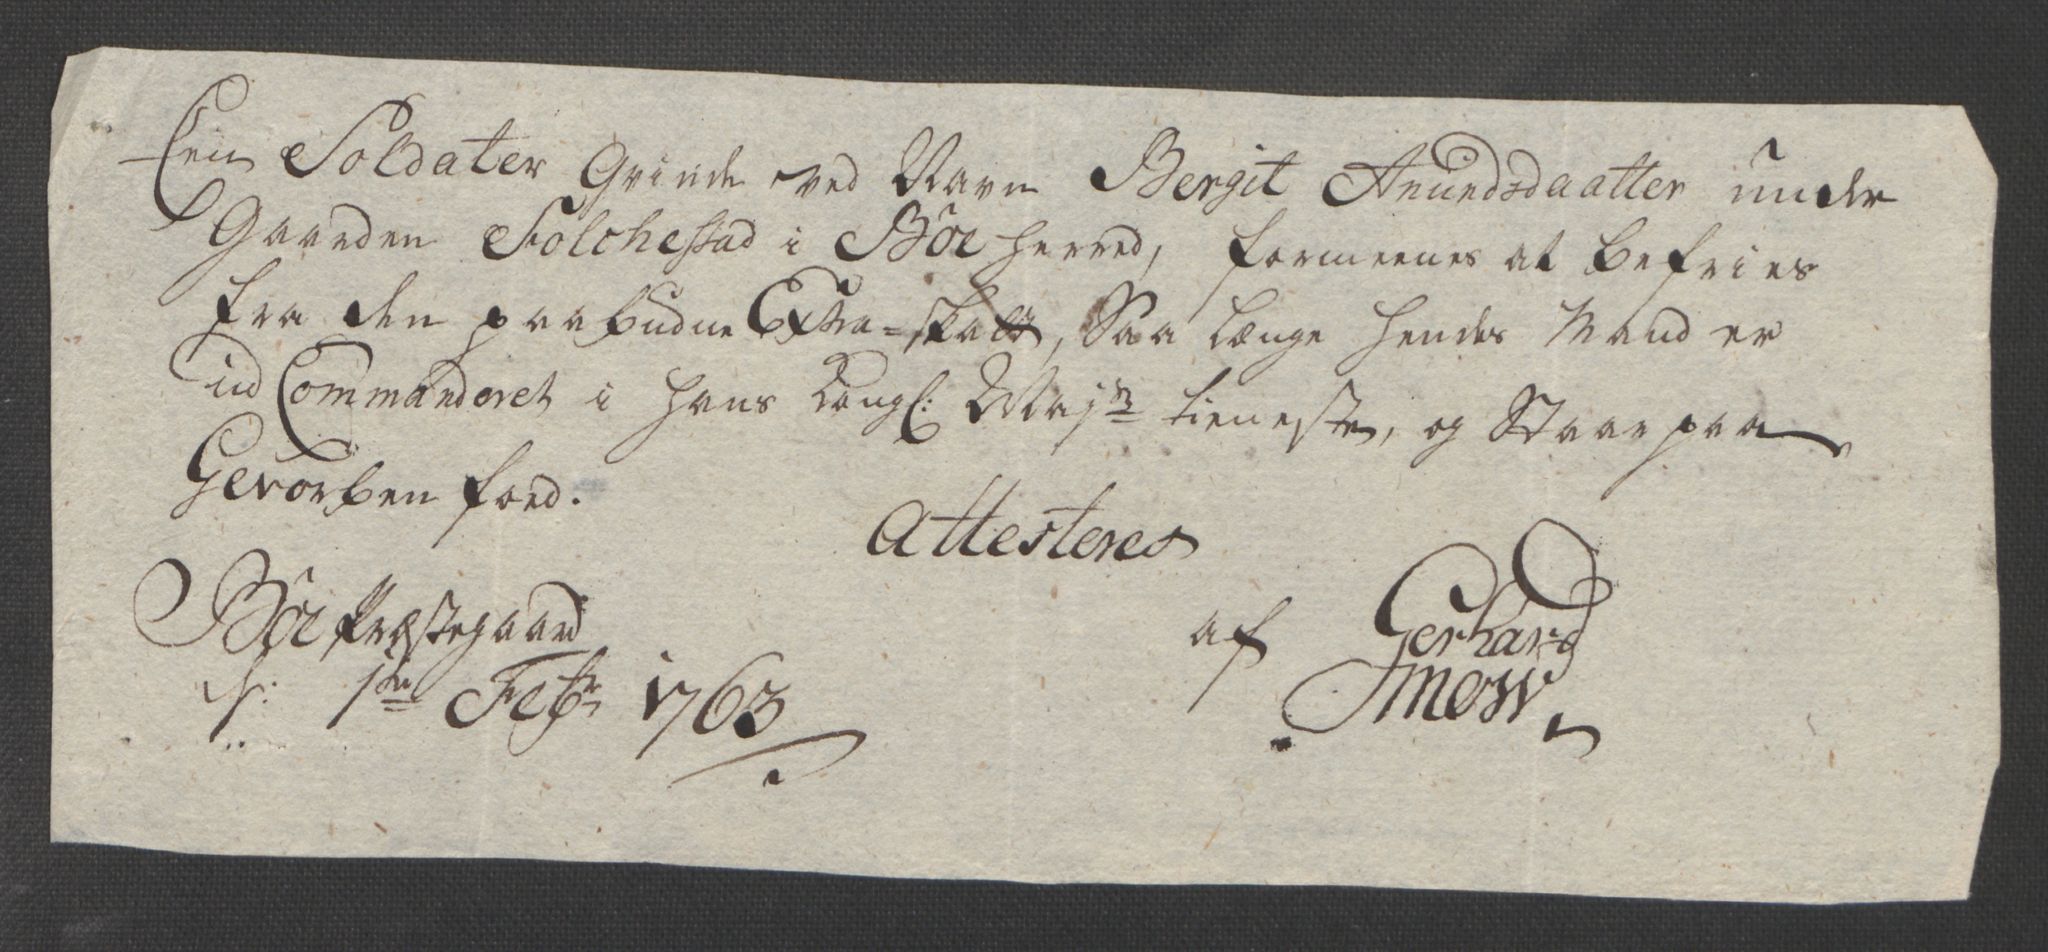 Een Soldater Qvinde ved Navn Bergit Anundsdaatter under
Gaarden Folchestad i Böe herred, formeenes at befries
fra den paabudne Extra-skatt, Saa længe hendes Mand er
ud Commanderet i hans Kongl: Maj.ts tieneste, og Staar paa
Gevorben foed.
Attesteres
Böe Præstegaard
d: 1ste Febr 1763
af Gerhard